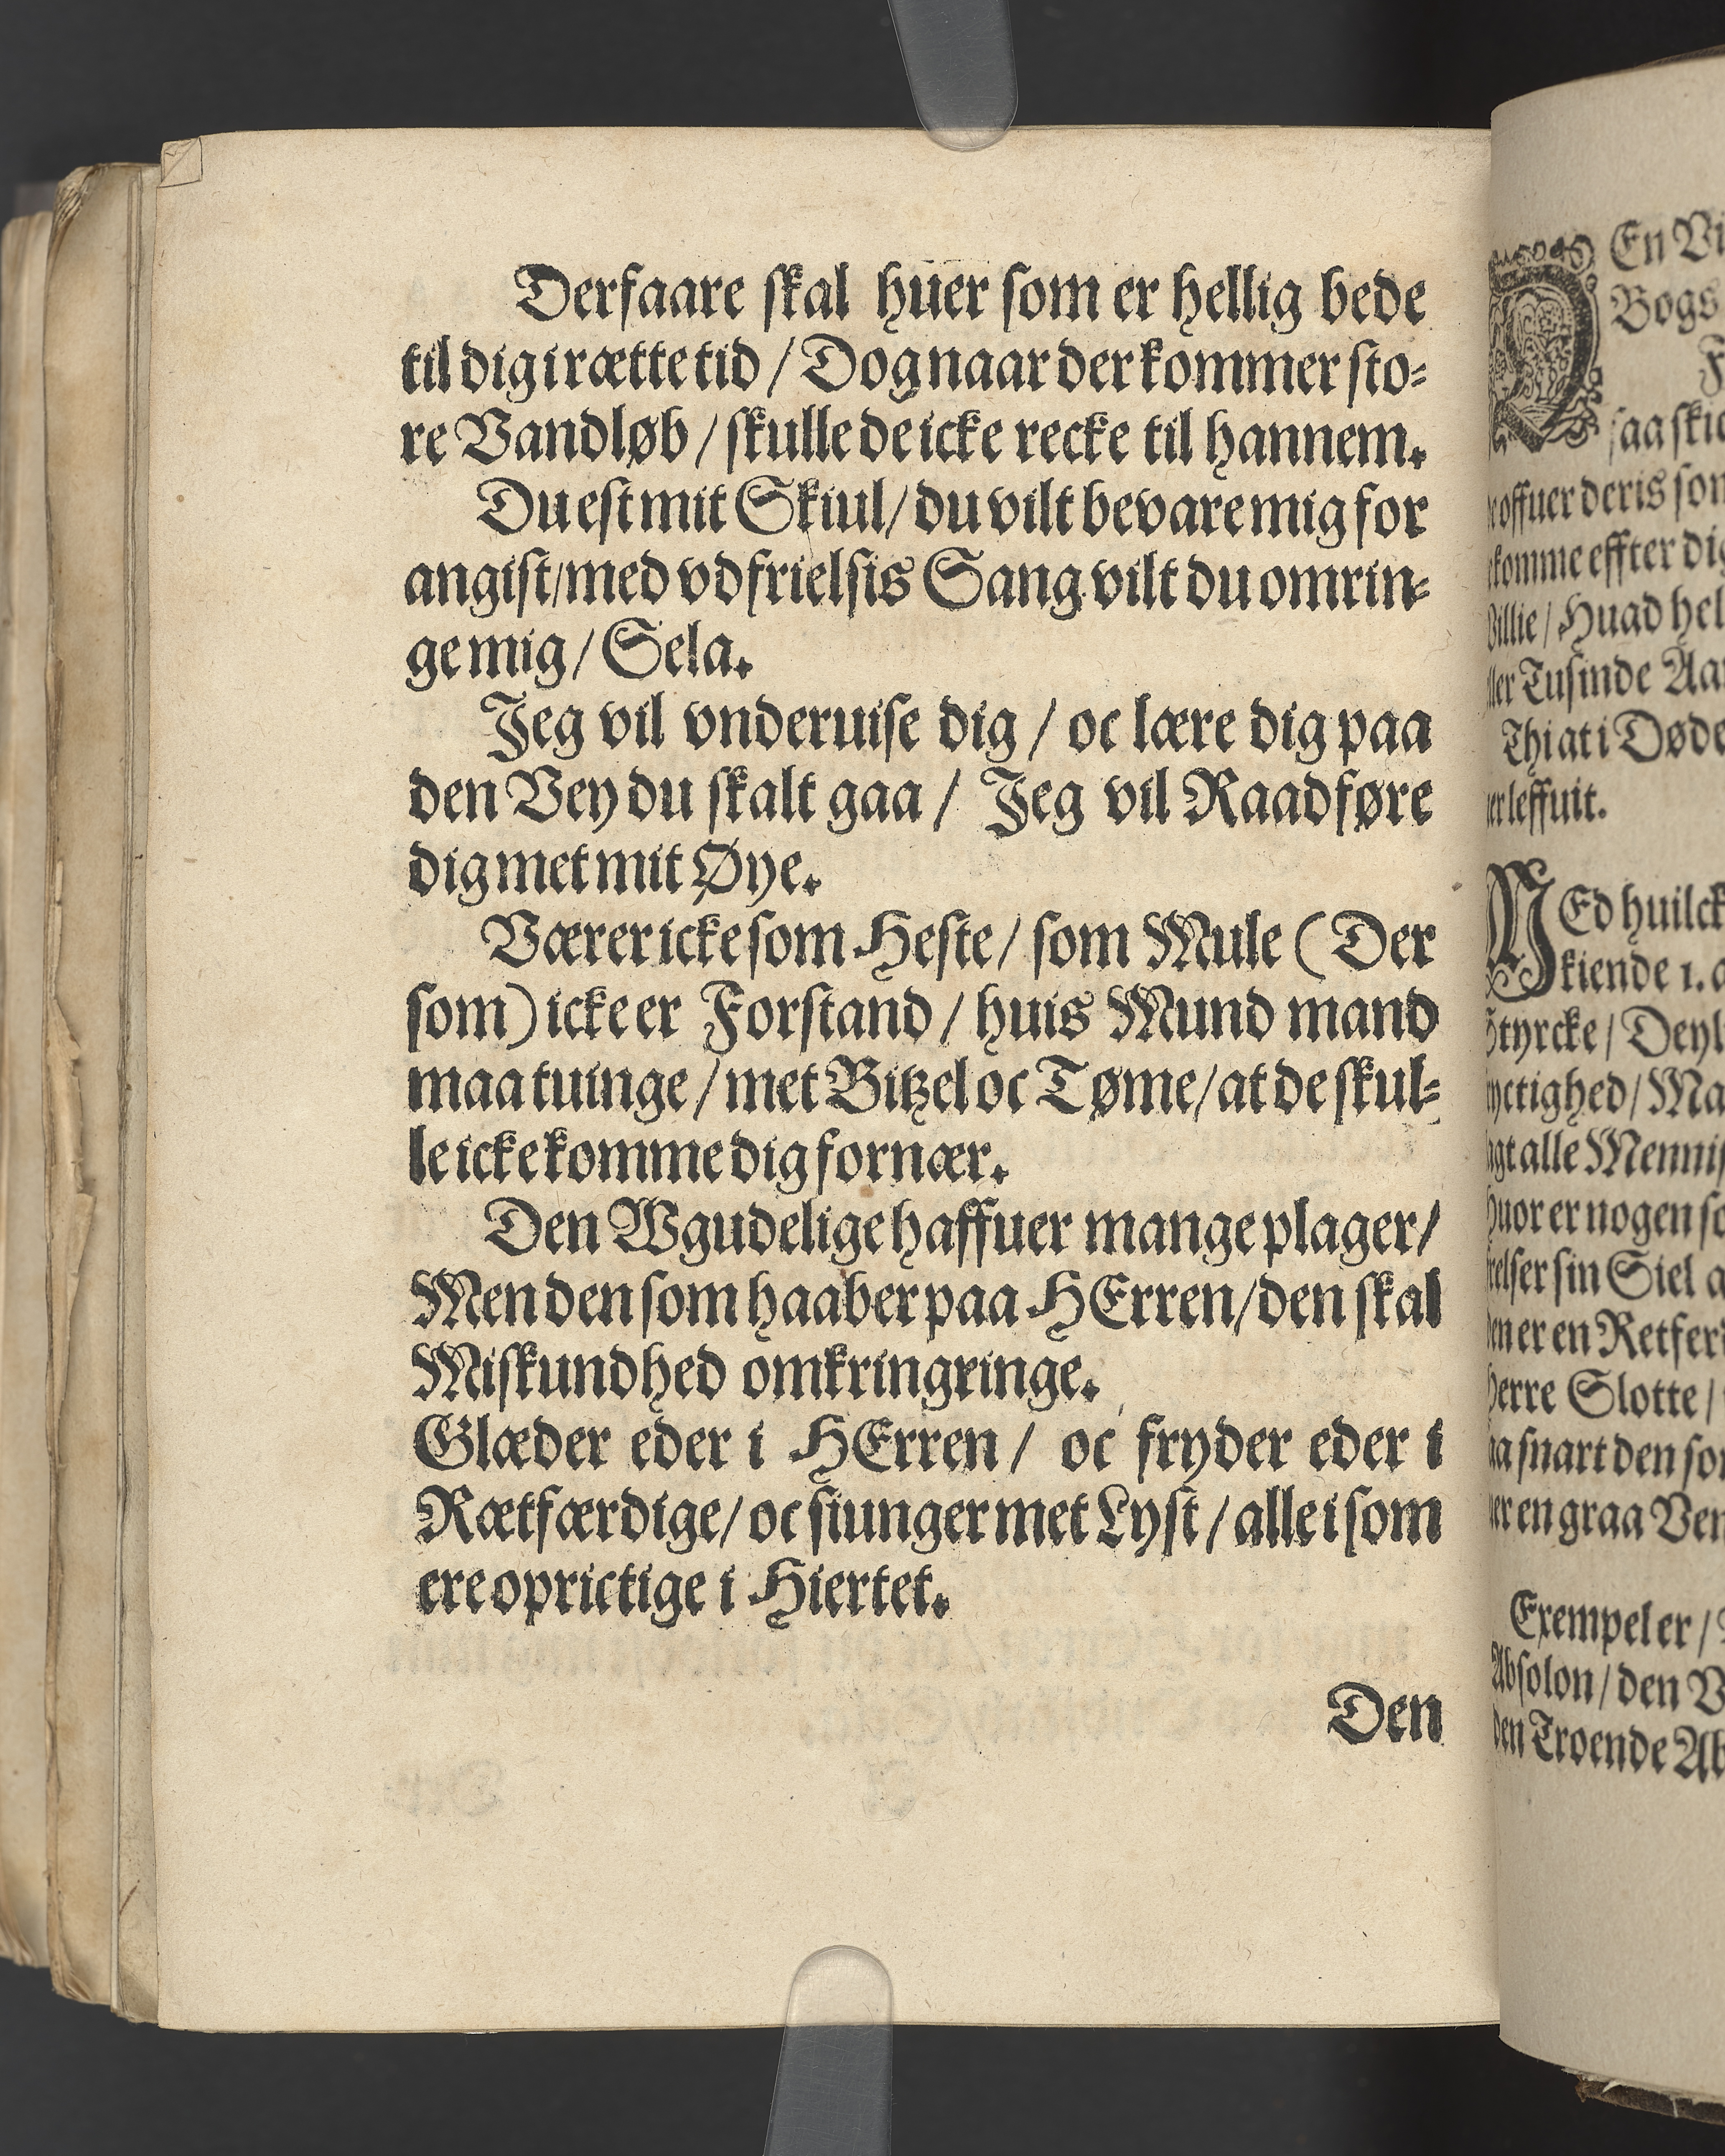 Derfaare skal huer som er hellig bede
til dig i rætte tid / Dog naar der kommer sto-
re Vandløb / skulle de icke recke til hannem.
Du est mit Skiul / du vilt bevare mig for
angist / med vdfrielsis Sang vilt du omrin-
ge mig / Sela.
Jeg vil vnderuise dig / oc lære dig paa
den Vey du skalt gaa / Jeg vil Raadføre
dig met mit Øye.
Værer icke som Heste / som Mule (Der
som) icke er Forstand / huis Mund mand
maa tuinge / met Bitzel oc Tøme / at de skul-
le icke komme dig for nær.
Den Wgudelige haffuer mange plager /
Men den som haaber paa HErren / den skal
Miskundhed omkringringe.
Glæder eder i HErren / oc fryder eder i
Rætfærdige / oc siunger met Lyst / alle i som
ere oprictige i Hiertet.
Den
En Vi
Bogs
saa skic
offuer deris som
komme effter dig
Villie / Huad hel
ller Tusinde Aar
Thi at i Døde
er leffuit.
MEd huilck
kiende 1. a
Styrcke / Deyl
yctighed / Ma
agt alle Mennis
huor er nogen so
frelser sin Siel a
den er en Retferd
herre Slotte /
aa snart den som
er en graa Ven
Exempel er /
Absolon / den V
den Troende Ab